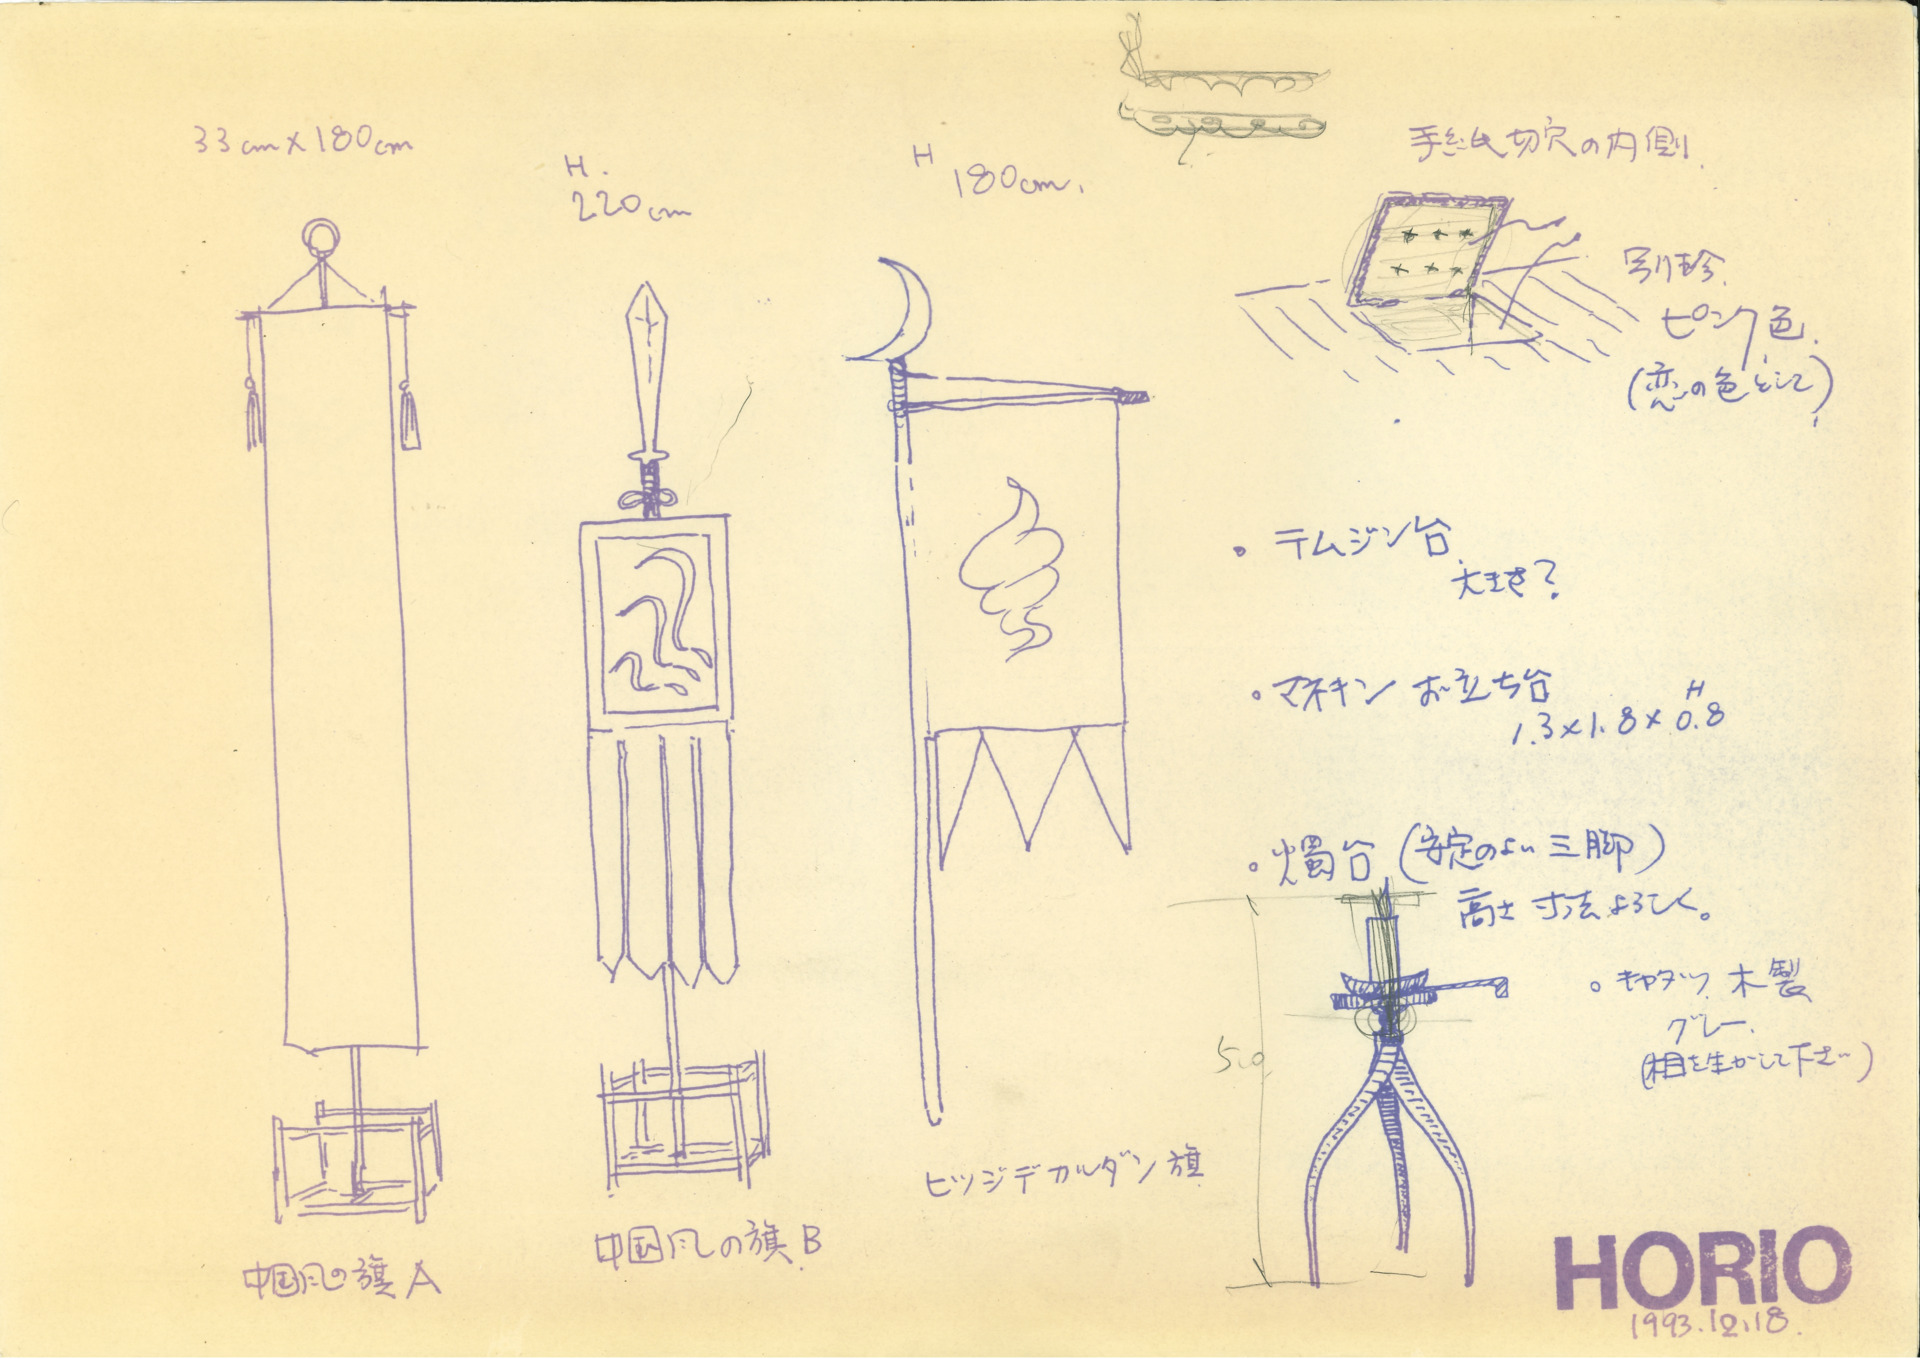 33cm×180cm
H.
220cm
H
180cm.
手紙切穴の内側.
ピンク色.
(恋の色として)
・テムジン台
大きさ?
・マネキン お立ち台
H
1.3×1.8×0.8
・燭台 (安定のよい三脚)
高さ 寸法よろしく。
50
・キャタツ 木製
グレー.
(木目を生かして下さい)
ヒツジデカルダン旗
中国風の旗 B
中国風の旗 A
HORIO
1993.12.18.